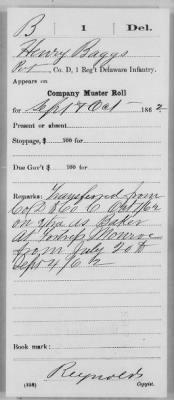 B 1 Del.
Henry Baggs
Pvt, Co. D, 1 Reg't Delaware Infantry.
Appears on
Company Muster Roll
for Sept & Oct 1862
Present or absent
Stoppage, $ 100 for
Due Gov't $ 100 for
Remarks: Transferred from
Co D to Co C Oct 1/62
on Dtra as Baker
at Fortress Monroe
from July 20 to
Sept 4/62
Book mark:
Reynolds
(358) Copyist.